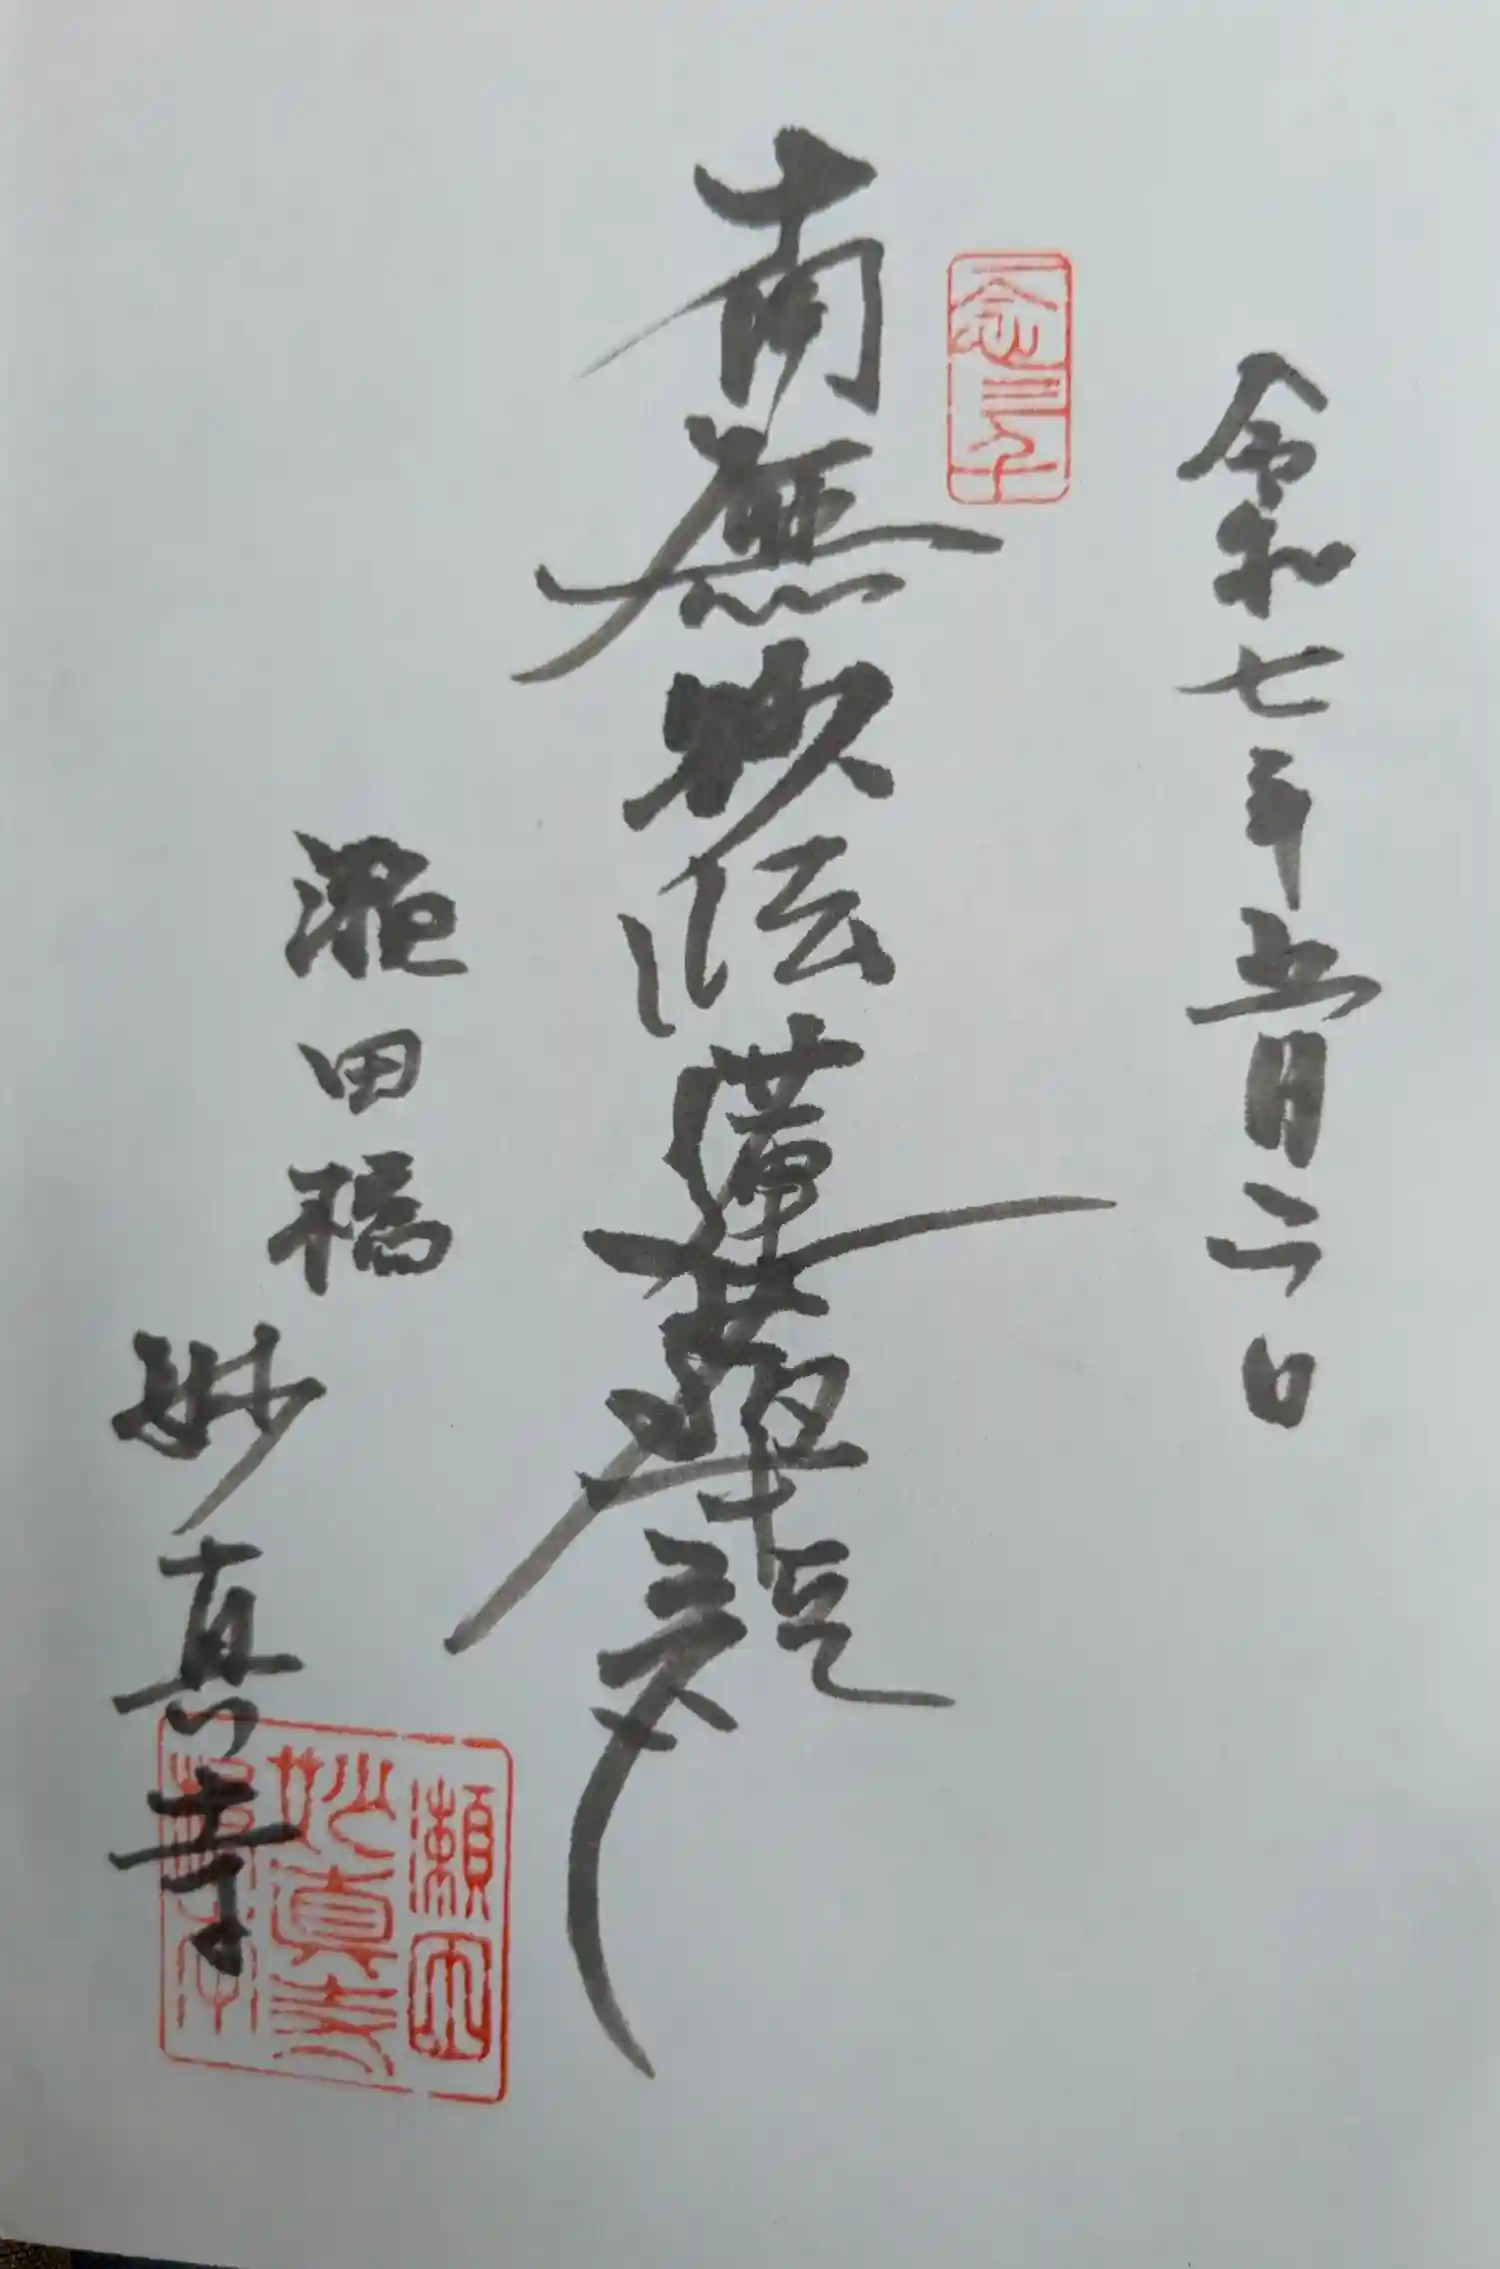 令和七年五月二日
一念三千
南無妙法蓮華経
瀬田橋
妙真寺
瀬田
妙真寺